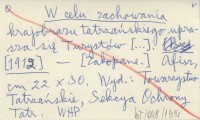 W celu zachowania
krajobrazu Tatrzańskiego upra-
sza się Turystów [...].
[1912] — [Zakopane.] Afisz,
cm 22 x 30. Wyd.: Towarzystwo
Tatrzańskie, Sekcya Ochrony
Tatr. WHP